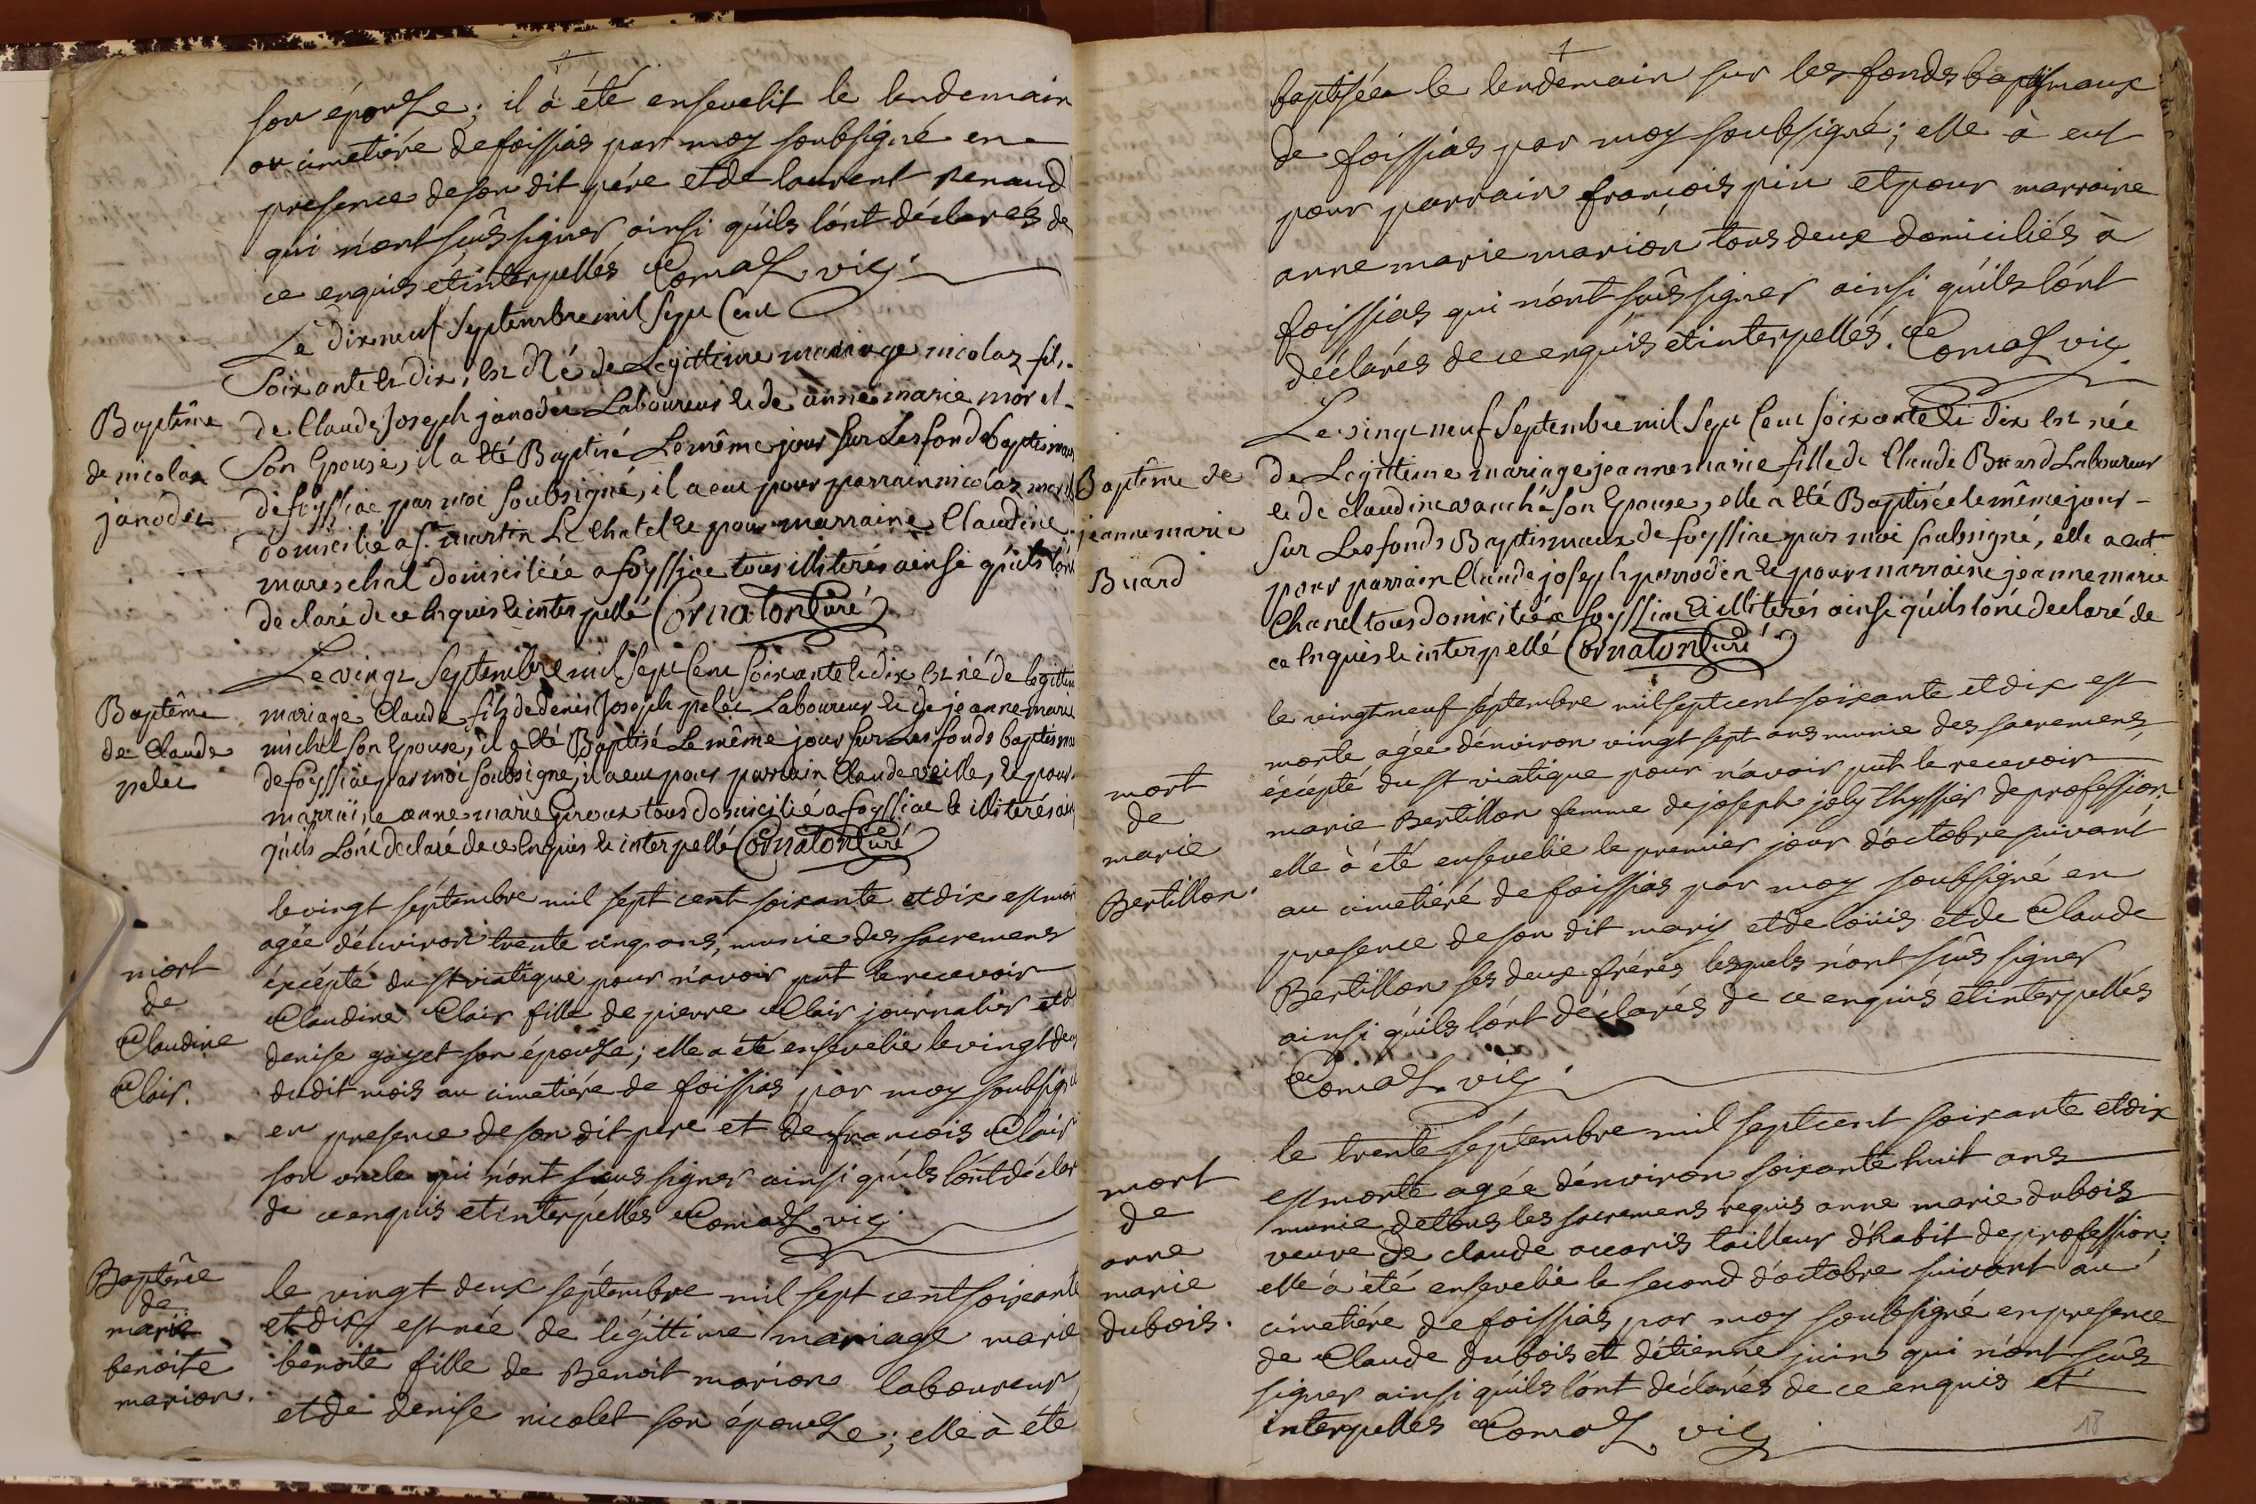 son épouse; il à été ensevelit le lendemain
au cimetiére de foissias par moy soubsigné en
presence de son dit pére et de laurent renaud
qui n'ont sçûs signer ainsi qu'ils l'ont déclarés de
ce enquis et interpellés Comas vic.
Le dix neuf Septembre mil Sept Cent
Soixante et dix, est Né de Legittime mariage nicolas fils
de Claude Joseph janodet Laboureur et de anne marie morel
Son Epouse, il a été Baptisé Le même jour Sur Les fonds baptismaux
de foyssiac par moi Soubsigné, il a eut pour parrain nicolas morel
domicilié a St martin Le Chatel et pour marraine Claudine
mareschal domiciliée a foyssiac tous illiterés ainsi qu'ils l'ont
declaré de ce Enquis et interpellé Cornaton Curé
Baptême
de nicolas
janodet
Le vingt Septembre mil Sept Cent Soixante et dix est né de legittime
mariage Claude fils de denis Joseph pelet Laboureur et de jeanne marie
michel Son Epouse, il a été Baptisé Le même jour Sur Les fonds baptismaux
de foyssiac par moi Soubsigné, il a eut pour parrain Claude veille, et pour
marraine anne marie Giroux tous domicilié a foyssiac et illiterés ainsi
qu'ils L'ont declaré de ce Enquis et interpellé Cornaton Curé
Baptême
de Claude
pelet
le vingt séptembre mil sept cent soixante et dix est morte
agée d'environ trente cinq ans, munie des sacremens
éxcépté du st viatique pour n'avoir put le recevoir
Claudine Clair fille de pierre Clair journalier et de
denise gayet son épouse; elle a été ensevelie le vingt deux
du dit mois au cimetiére de foissias par moy soubsigné
en presence de son dit pere et de françois Clair
son oncle qui n'ont sceus signer ainsi qu'ils l'ont déclarés
de ce enquis et interpellés Comas vic.
mort
de
Claudine
Clair.
le vingt deux séptembre mil sept cent soixante
et dix est née de légittime mariage marie
benoite fille de Benoit marion laboureur
et de denise nicolet son épouse; elle à été
Baptême
de
marie
benoite
marion.
baptisée le lendemain sur les fonds baptismaux
de foissias par moy soubsigné; elle à eut
pour parrain françois pin et pour marraine
anne marie marion tous deux domiciliés à
foissias qui n'ont sçûs signer ainsi qu'ils l'ont
déclarés de ce enquis et interpellés. Comas vic.
Le vingt neuf Septembre mil Sept Cent Soixante et dix est née
de Legittime mariage jeanne marie fille de Claude Buard Laboureur
et de claudine vauché Son Epouse, elle a été Baptisée le même jour
Sur Les fonds Baptismaux de foyssiac par moi Soubsigné, elle a eut
pour parrain Claude joseph perrodin et pour marraine jeanne marie
Chanel tous domiciliés a foyssiac et illiterés ainsi qu'ils l'ont declaré de
ce Enquis et interpellé Cornaton Curé
Baptême de
jeanne marie
Buard
le vingt neuf séptembre mil sept cent soixante et dix est
morte agée d'environ vingt sept ans munie des sacremens,
éxcépté du st viatique pour n'avoir put le recevoir
marie Bertillon femme de joseph joly thyssier de profession
elle à été ensevelie le premier jour d'octobre suivant
au cimetiéré de foissias par moy soubsigné en
presence de son dit mary et de loüis et de Claude
Bertillon ses deux fréres lesquels n'ont sçûs signer
ainsi qu'ils l'ont déclarés de ce enquis et interpellés
Comas vic.
mort
de
marie
Bertillon.
le trente séptembre mil sept cent soixante et dix
est morte agée d'environ soixante huit ans
munie de tous les sacremens requis anne marie dubois
veuve de claude accaris tailleur d'habit de profession;
elle à été ensevelie le second d'octobre suivant au
cimetiére de foissias par moy soubsigné en presence
de Claude dubois et d'étienne juin qui n'ont sçûs
signer ainsi qu'ils l'ont déclarés de ce enquis et
interpellés Comas vic
mort
de
anne
marie
dubois.
18